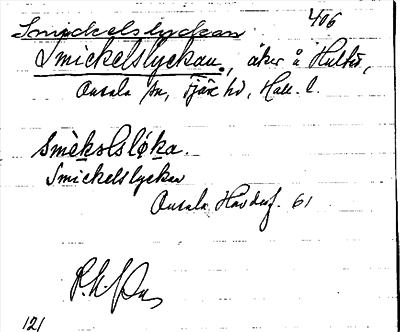 406
Smickelslyckan
Smickelslyckan, åker å Hultet,
Onsala sn, Fjäre hd, Hall. l.
Smèkəlsløka.
Smickelslyckan
Onsala 61
121